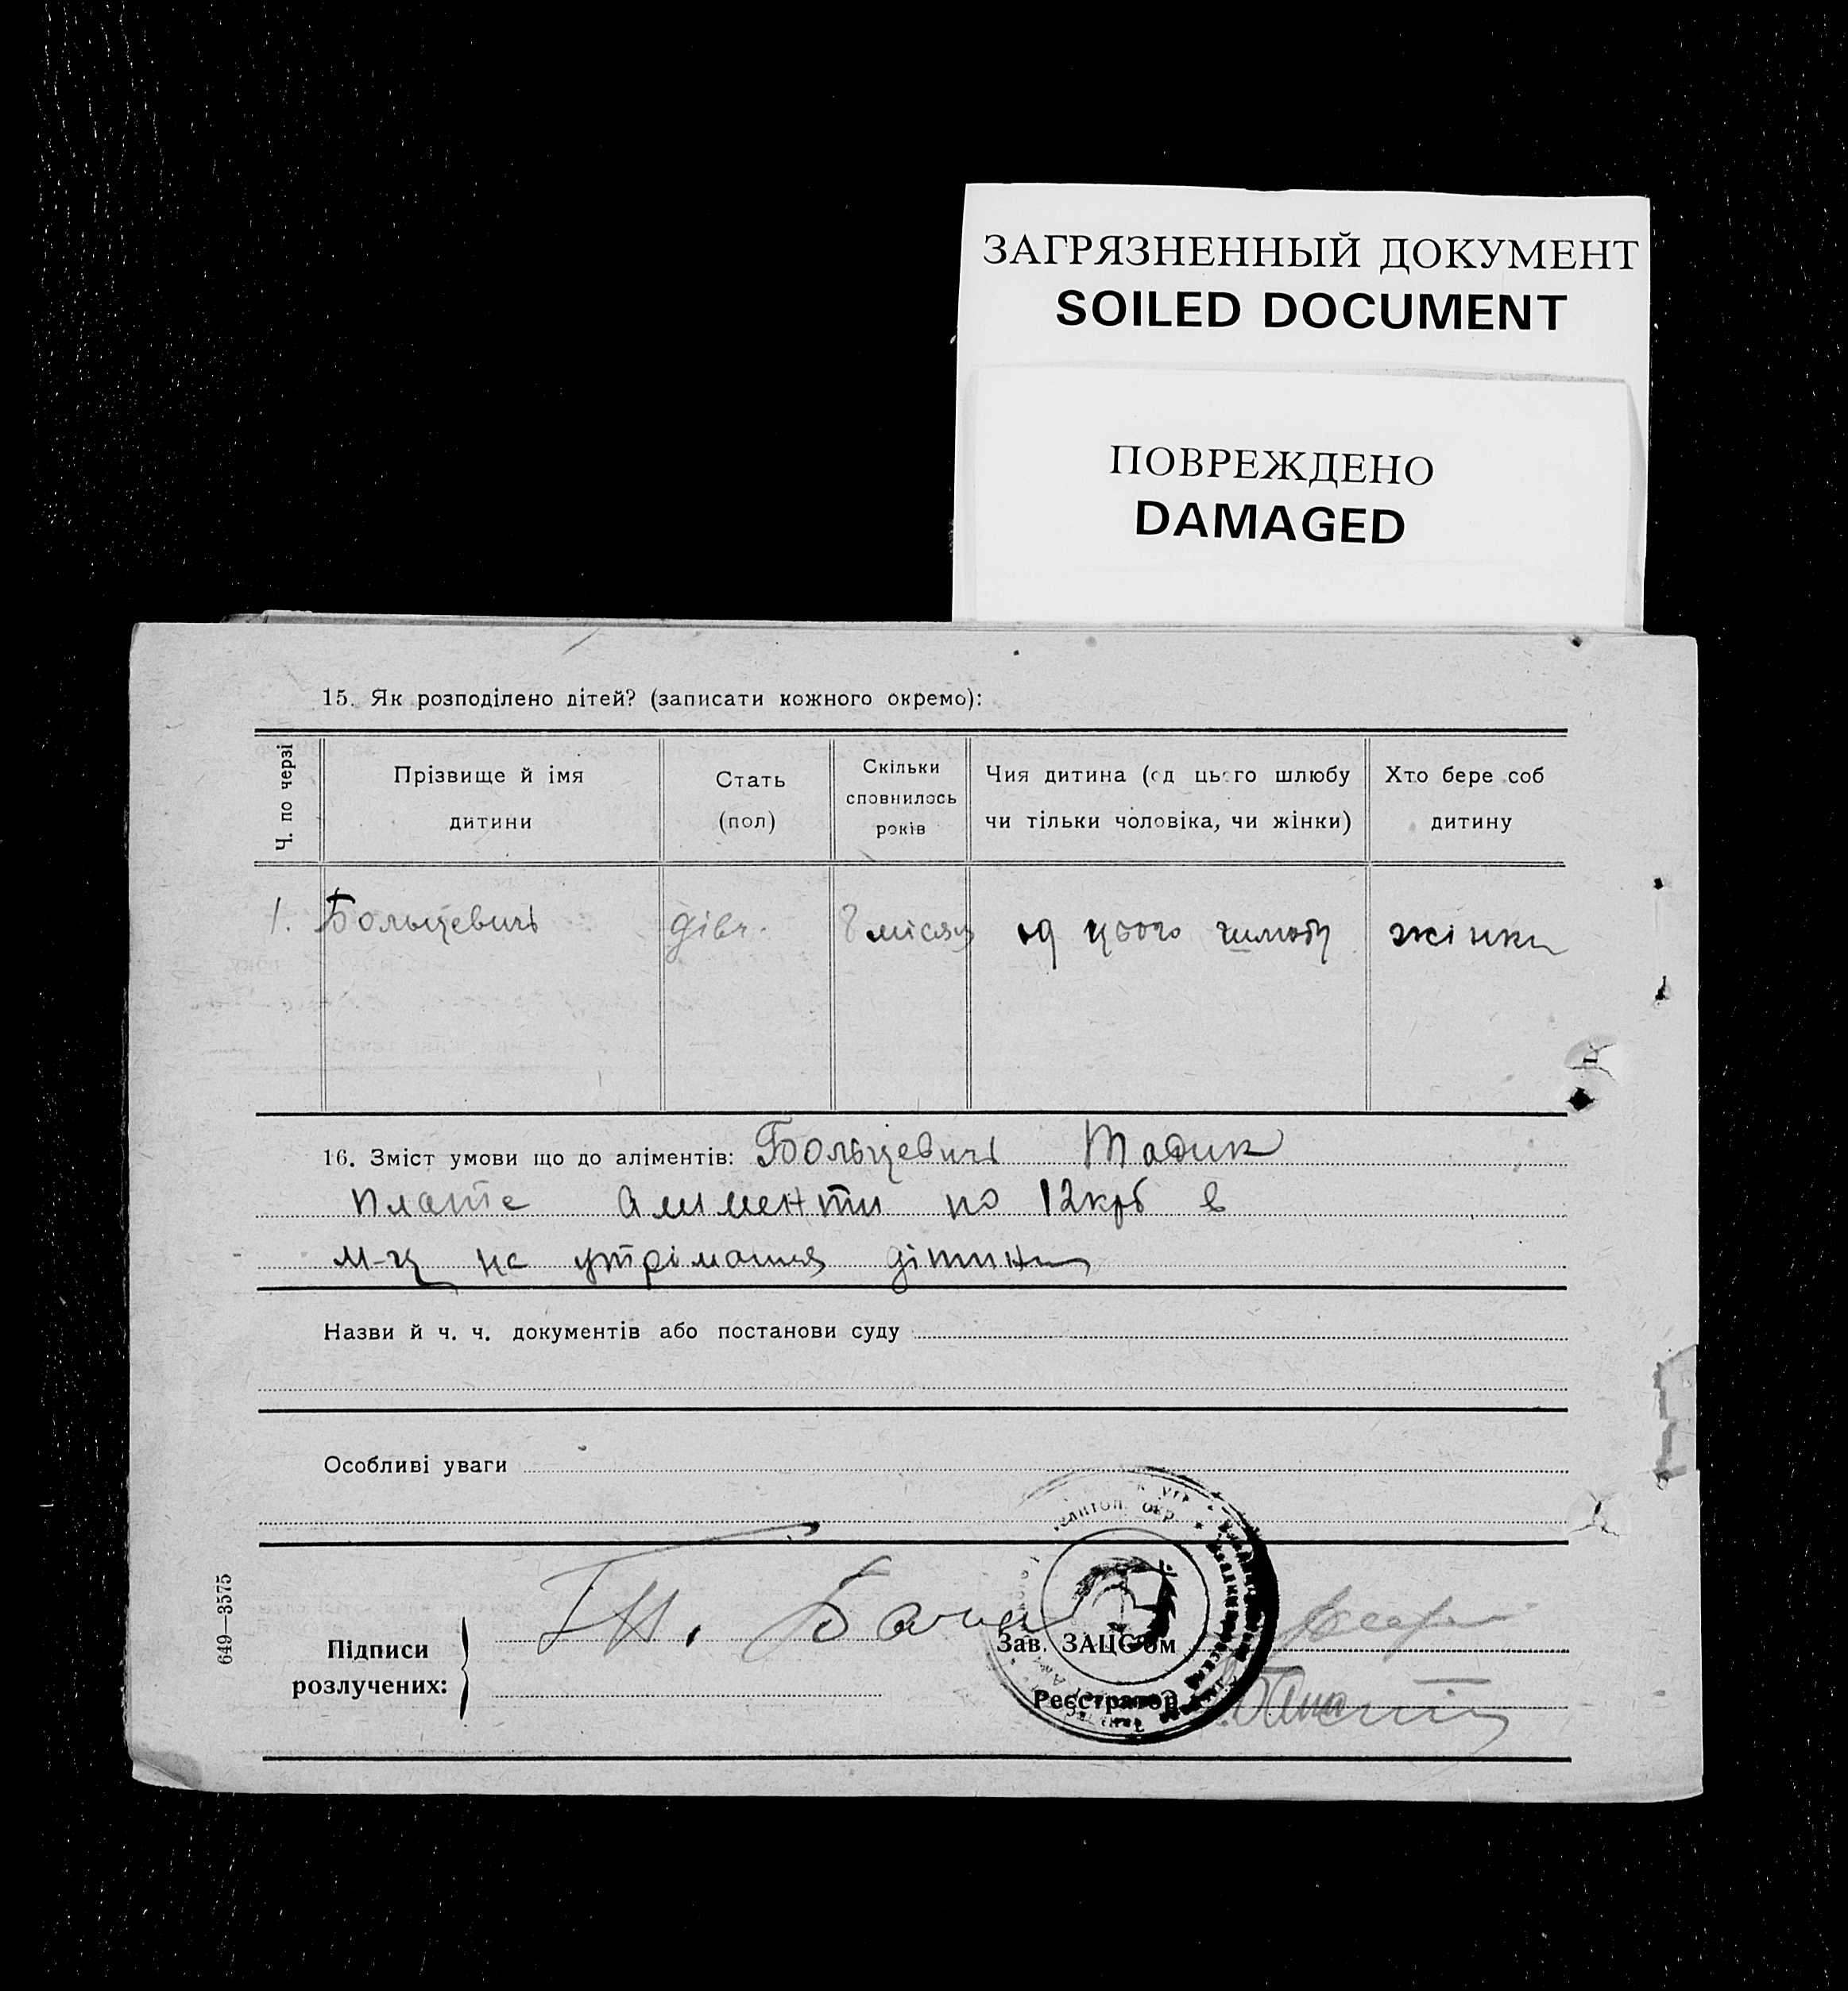 ЗАГРЯЗНЕННЫЙ ДОКУМЕНТ
SOILED DOCUMENT
ПОВРЕЖДЕНО
DAMAGED
15. Як розподілено дітей? (записати кожного окремо):
Ч. по черзі
Прізвище й імя дитини
Стать (пол)
Скільки сповнилось років
Чия дитина (од цього шлюбу чи тільки чоловіка, чи жінки)
Хто бере соб дитину
1. Больцевичі дівч. місяц од цього шлюбу жінки
16. Зміст умови що до аліментів: Больцевичі Тадик
плате алименти по 12 крб в
м-ц на утрімання дітини
Назви й ч. ч. документів або постанови суду
Особливі уваги
649—3575
Підписи
розлучених:
Зав. ЗАЦС'ом
Реєстратор